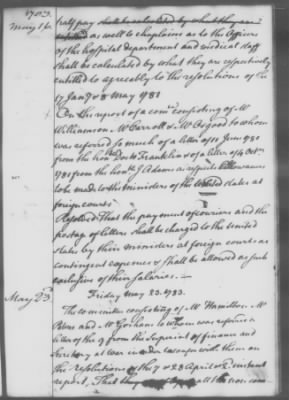 1783.
May 16.
half pay shall be calculated by what they are
entitled as well to chaplains as to the Officers
of the hospital department and medical staff
shall be calculated by what they are respectively
entitled to agreeably to the resolutions of the
17 Jany & 8 May 1781
On the report of a comee consisting of Mr
Williamson Mr Carroll & Mr Osgood to whom
was referred so much of a letter of
from the honble Doctr Franklin & of a letter of 4 Octr
1781 from the honble J Adams as respects allowances
to be made to the ministers of the United states at
foreign courts
Resolved That the payment of couriers and the
postage of letters shall be charged to the United
states by their ministers at foreign courts as
contingent expences & shall be allowed as such
exclusive of their salaries.
May 23d
Friday May 23. 1783.
The committee consisting of Mr Hamilton Mr
Peters and Mr Gorham to whom was referred a
letter of the 9 from the Superint of finance and
Secretary at war confer with them on
the resolutions of the 7 & 23 April & 2 instant
report, That they all the non com